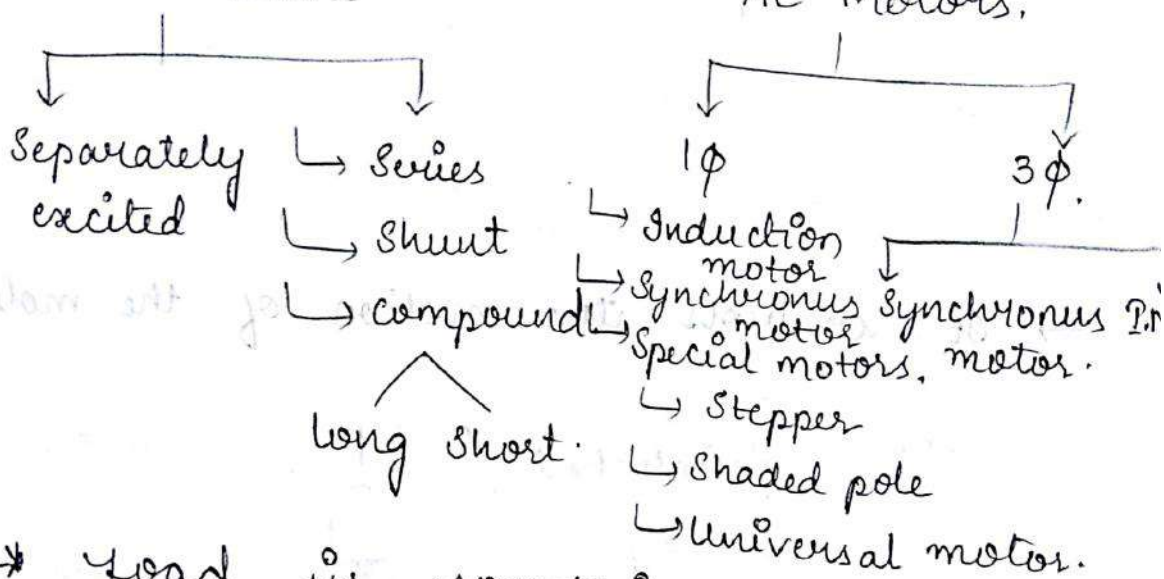 AC Motors.
Separately
excited
Series
Shunt
Compound
Long Short.
1φ
Induction
motor
Synchronus
motor
Special motors.
Stepper
Shaded pole
Universal motor.
3φ.
Synchronus
motor.
* Load